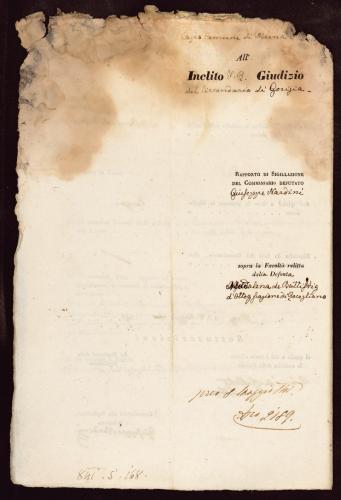 Capo Comune di
All'
Inclito I. R. Giudizio
del Circondario di Gorizia
RAPPORTO DI SIGILLAZIONE
DEL COMMISSARIO DEPUTATO
Giuseppe Nardini
sopra la Facoltà relitta
della Defonta
Maddalena de Battistig
d'
pres. 8 Maggio
Nro 2189.
841. 5. 168.